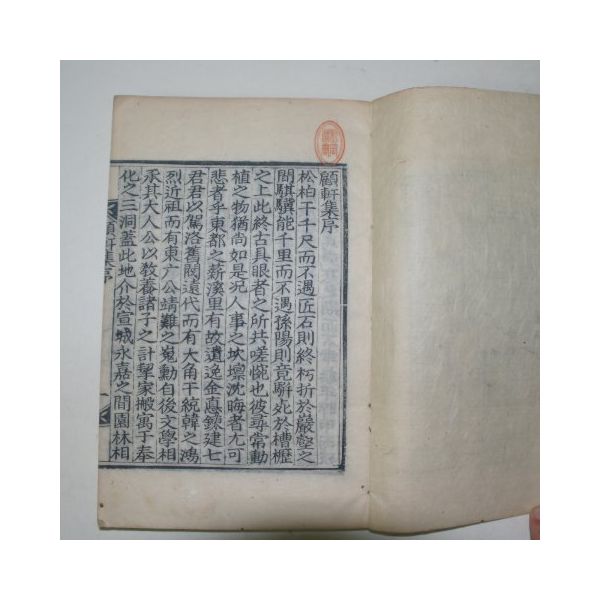 顧軒集序
松柏干千尺而不遇匠石則終朽折於巖壑之
間騏驥能千里而不遇孫陽則竟騈死於槽櫪
之上此終古具眼者之所共嗟惋也彼尋常動
植之物猶尚如是况人事之坎壈沈晦者尤可
悲者乎東都之新溪里有故遺逸金 建七
君君以駕洛舊閥遠代而有大角干統韓之鴻
烈近祖而有東广公靖難之嵬勳自後文學相
承其大人公以敎養諸子之計挈家搬寓于奉
化之三洞盖此地介於宣城永嘉之間園林相
顧軒集序
一